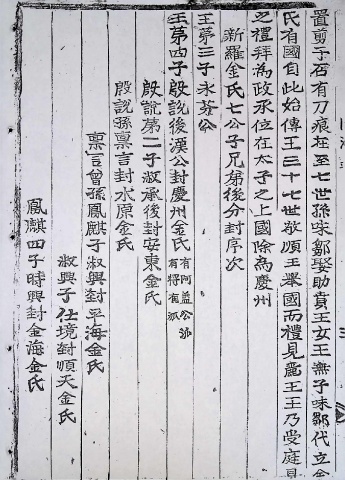 置剪子石有刀痕在至七世孫味鄒娶助賁王女王無子味鄒代立金
氏有國自此始傳王三十七世敬順王擧國而禮見麗王王乃受庭見
之禮拜為政丞位在太子之上國除為慶州
新羅金氏七公子兄弟後分封序次
王第三子永芬公
王第四子殷說後漢公封慶州金氏 有阿益公派 有將有派
殷說第二子淑承後封安東金氏
殷說孫稟言封水原金氏
稟言曾孫鳳麒子淑興封平海金氏
淑興子仕境封順天金氏
鳳麒四子時興封金海金氏